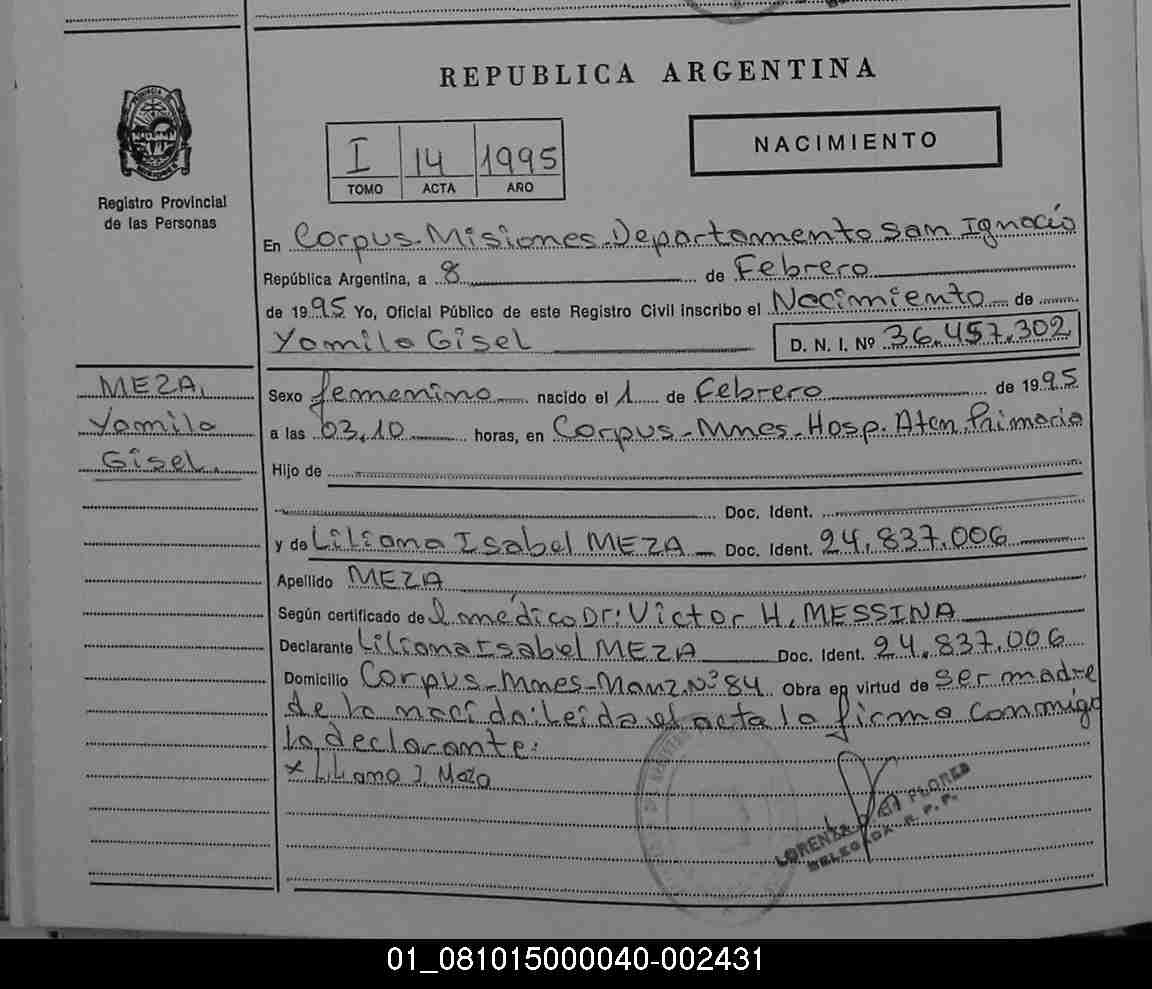 REPUBLICA ARGENTINA
I 14 1995
TOMO ACTA AÑO
NACIMIENTO
Registro Provincial
de las Personas
En Corpus-Misiones-Departamento San Ignacio
República Argentina, a 8 de Febrero
de 1995 Yo, Oficial Público de este Registro Civil inscribo el Nacimiento de
Yamila Gisel D. N. I. Nº 36.457.302
MEZA,
Yamila
Gisel.
Sexo femenino nacido el 1 de Febrero de 1995
a las 03,10 horas, en Corpus-Mnes-Hosp. Aten. Primaria
Hijo de
Doc. Ident.
y de Liliana Isabel MEZA Doc. Ident. 24.837.006
Apellido MEZA
Según certificado del médico Dr: Victor H. MESSINA
Declarante Liliana Isabel MEZA Doc. Ident. 24.837.006
Domicilio Corpus-Mnes-Manz. Nº 84 Obra en virtud de ser madre
de la nacida: Leida el acta la firma conmigo
la declarante:
x Liliana I. Meza
LORENZA FLORES
DELEGADA R. P. P.
01_081015000040-002431